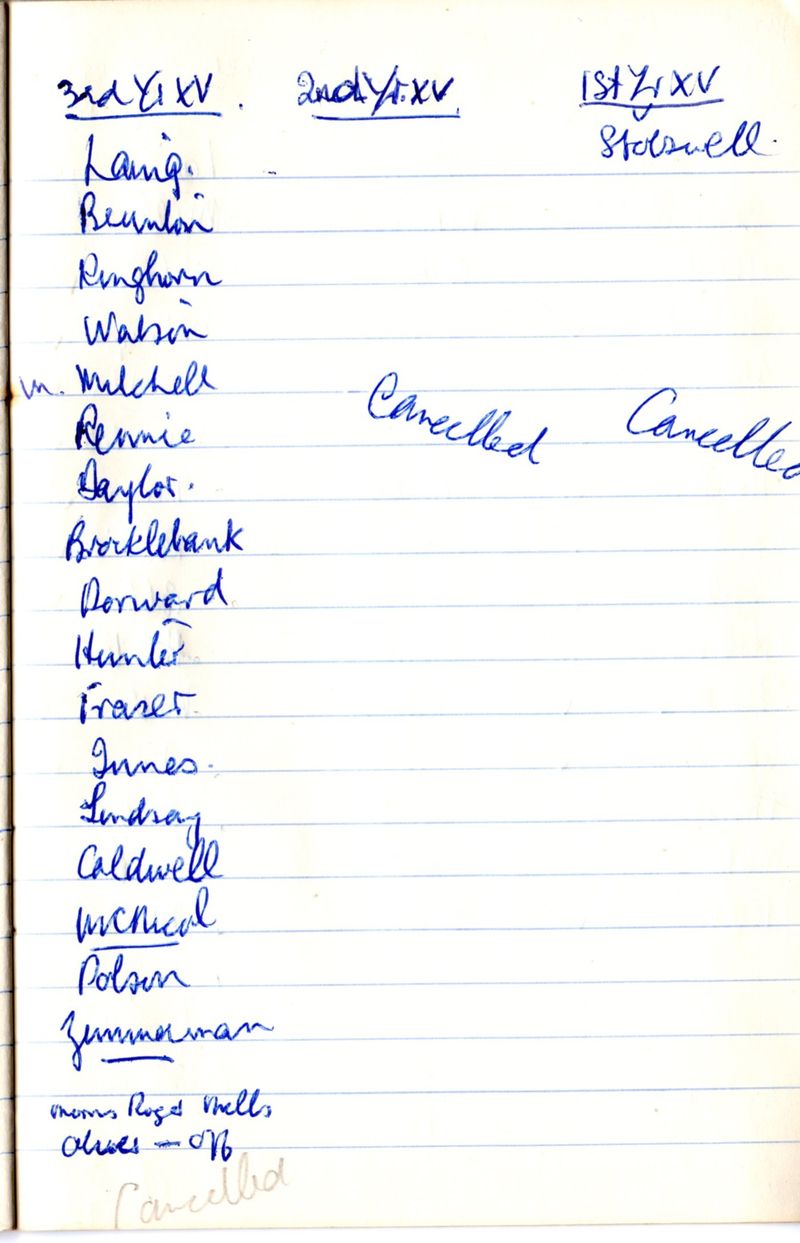 3rd Yr XV. 2nd Yr. XV. 1st Yr XV
Stobswell.
Laing.
Beunion
Ringhorn
Watson
m. Mitchell
Rennie
Taylor.
Cancelled Cancelled
Brocklebank
Dorward
Hunter
Fraser
Innes.
Lindsay
Caldwell
McNicol
Polson
Zimmerman
Morris Roger Mells
Oliver — off
Cancelled